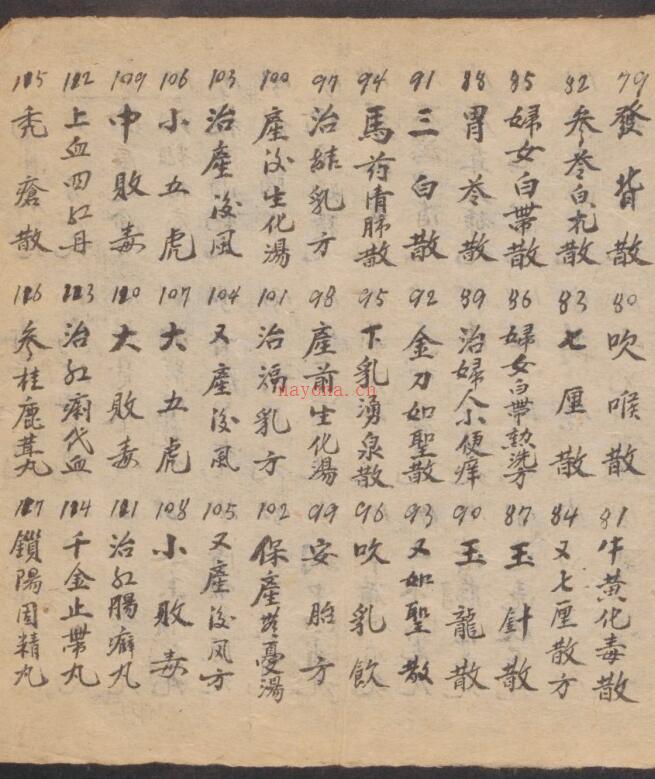 79 發背散
80 吹喉散
81 牛黃化毒散
82 參苓白朮散
83 七厘散
84 又七厘散方
85 婦女白帶散
86 婦女白帶熬洗方
87 玉針散
88 胃苓散
89 治婦人小便痒
90 玉龍散
91 三白散
92 金刀如聖散
93 又如聖散
94 馬药清肺散
95 下乳湧泉散
96 吹乳飲
97 治結乳方
98 產前生化湯
99 安胎方
100 產後生化湯
101 治漏乳方
102 保產無憂湯
103 治產後风
104 又產後风
105 又產後风方
106 小五虎
107 大五虎
108 小敗毒
109 中敗毒
110 大敗毒
111 治紅腸癖丸
112 上血四紅丹
113 治紅痢代血
114 千金止帶丸
115 禿瘡散
116 參桂鹿茸丸
117 鎖陽固精丸
nayona.cn